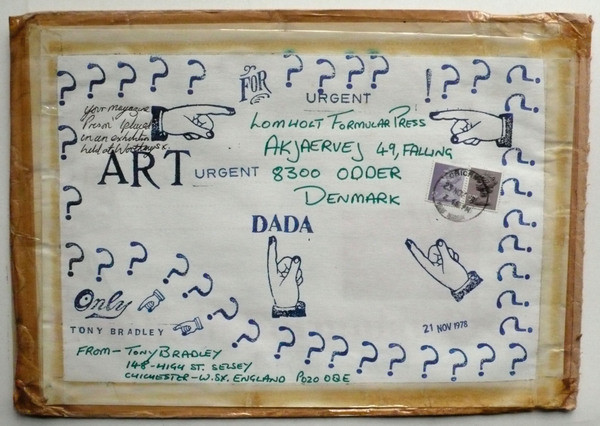 ? ? ? ? ? FOR ? ? ? ? ! ? ? ?
URGENT
your magazine
Prison
in an exhibition
held at
LOMHOLT FORMULAR PRESS
AKJAERVEJ 49, FALLING
8300 ODDER
DENMARK
ART URGENT
DADA
Only
TONY BRADLEY
21 NOV 1978
FROM - TONY BRADLEY
148 - HIGH ST. SELSEY
CHICHESTER - W. SX. ENGLAND PO20 0QE